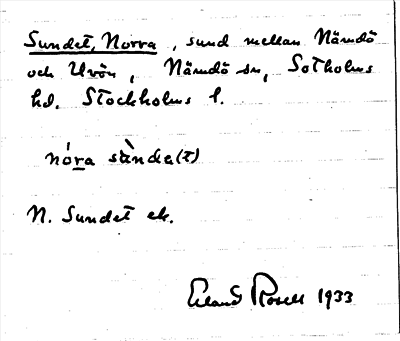 Sundet, Norra, sund mellan Nämdö
och Uvön, Nämdö sn, Sotholms
hd. Stockholms l.
nó̱ra sù̀nde(t)
N. Sundet ek.
Erland Rosell 1933